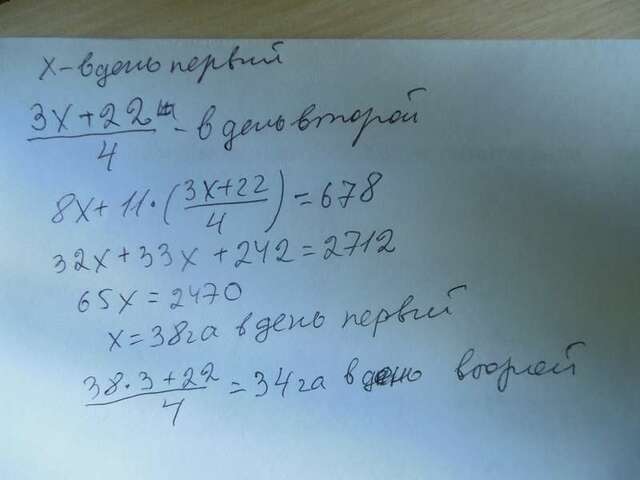 x - в день первий
(3x+22)/4 - в день второй
8x + 11 · ((3x+22)/4) = 678
32x + 33x + 242 = 2712
65x = 2470
x = 38 га в день первий
(38·3+22)/4 = 34 га в день второй